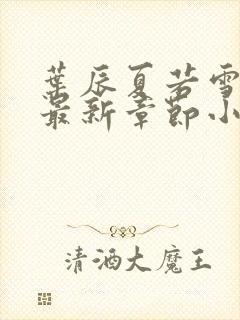 葉辰夏若雪
最新章節小
清酒大魔王